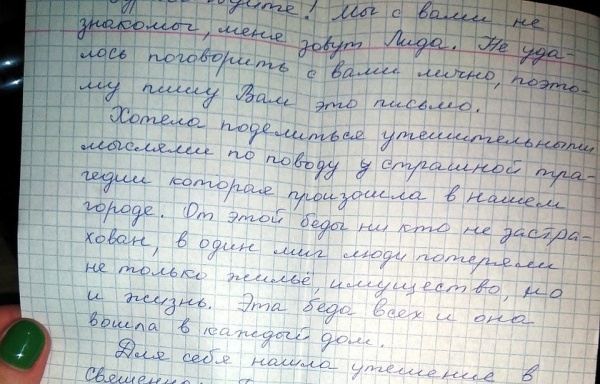 ! Мы с вами не
знакомы, меня зовут Лида. Не уда-
лось поговорить с вами лично, поэто-
му пишу Вам это письмо.
Хотела поделиться утешительными
мыслями по поводу у страшной тра-
гедии которая произошла в нашем
городе. От этой беды ни кто не застра-
хован, в один миг люди потеряли
не только жильё, имущество, но
и жизнь. Эта беда всех и она
вошла в каждый дом.
Для себя нашла утешение в